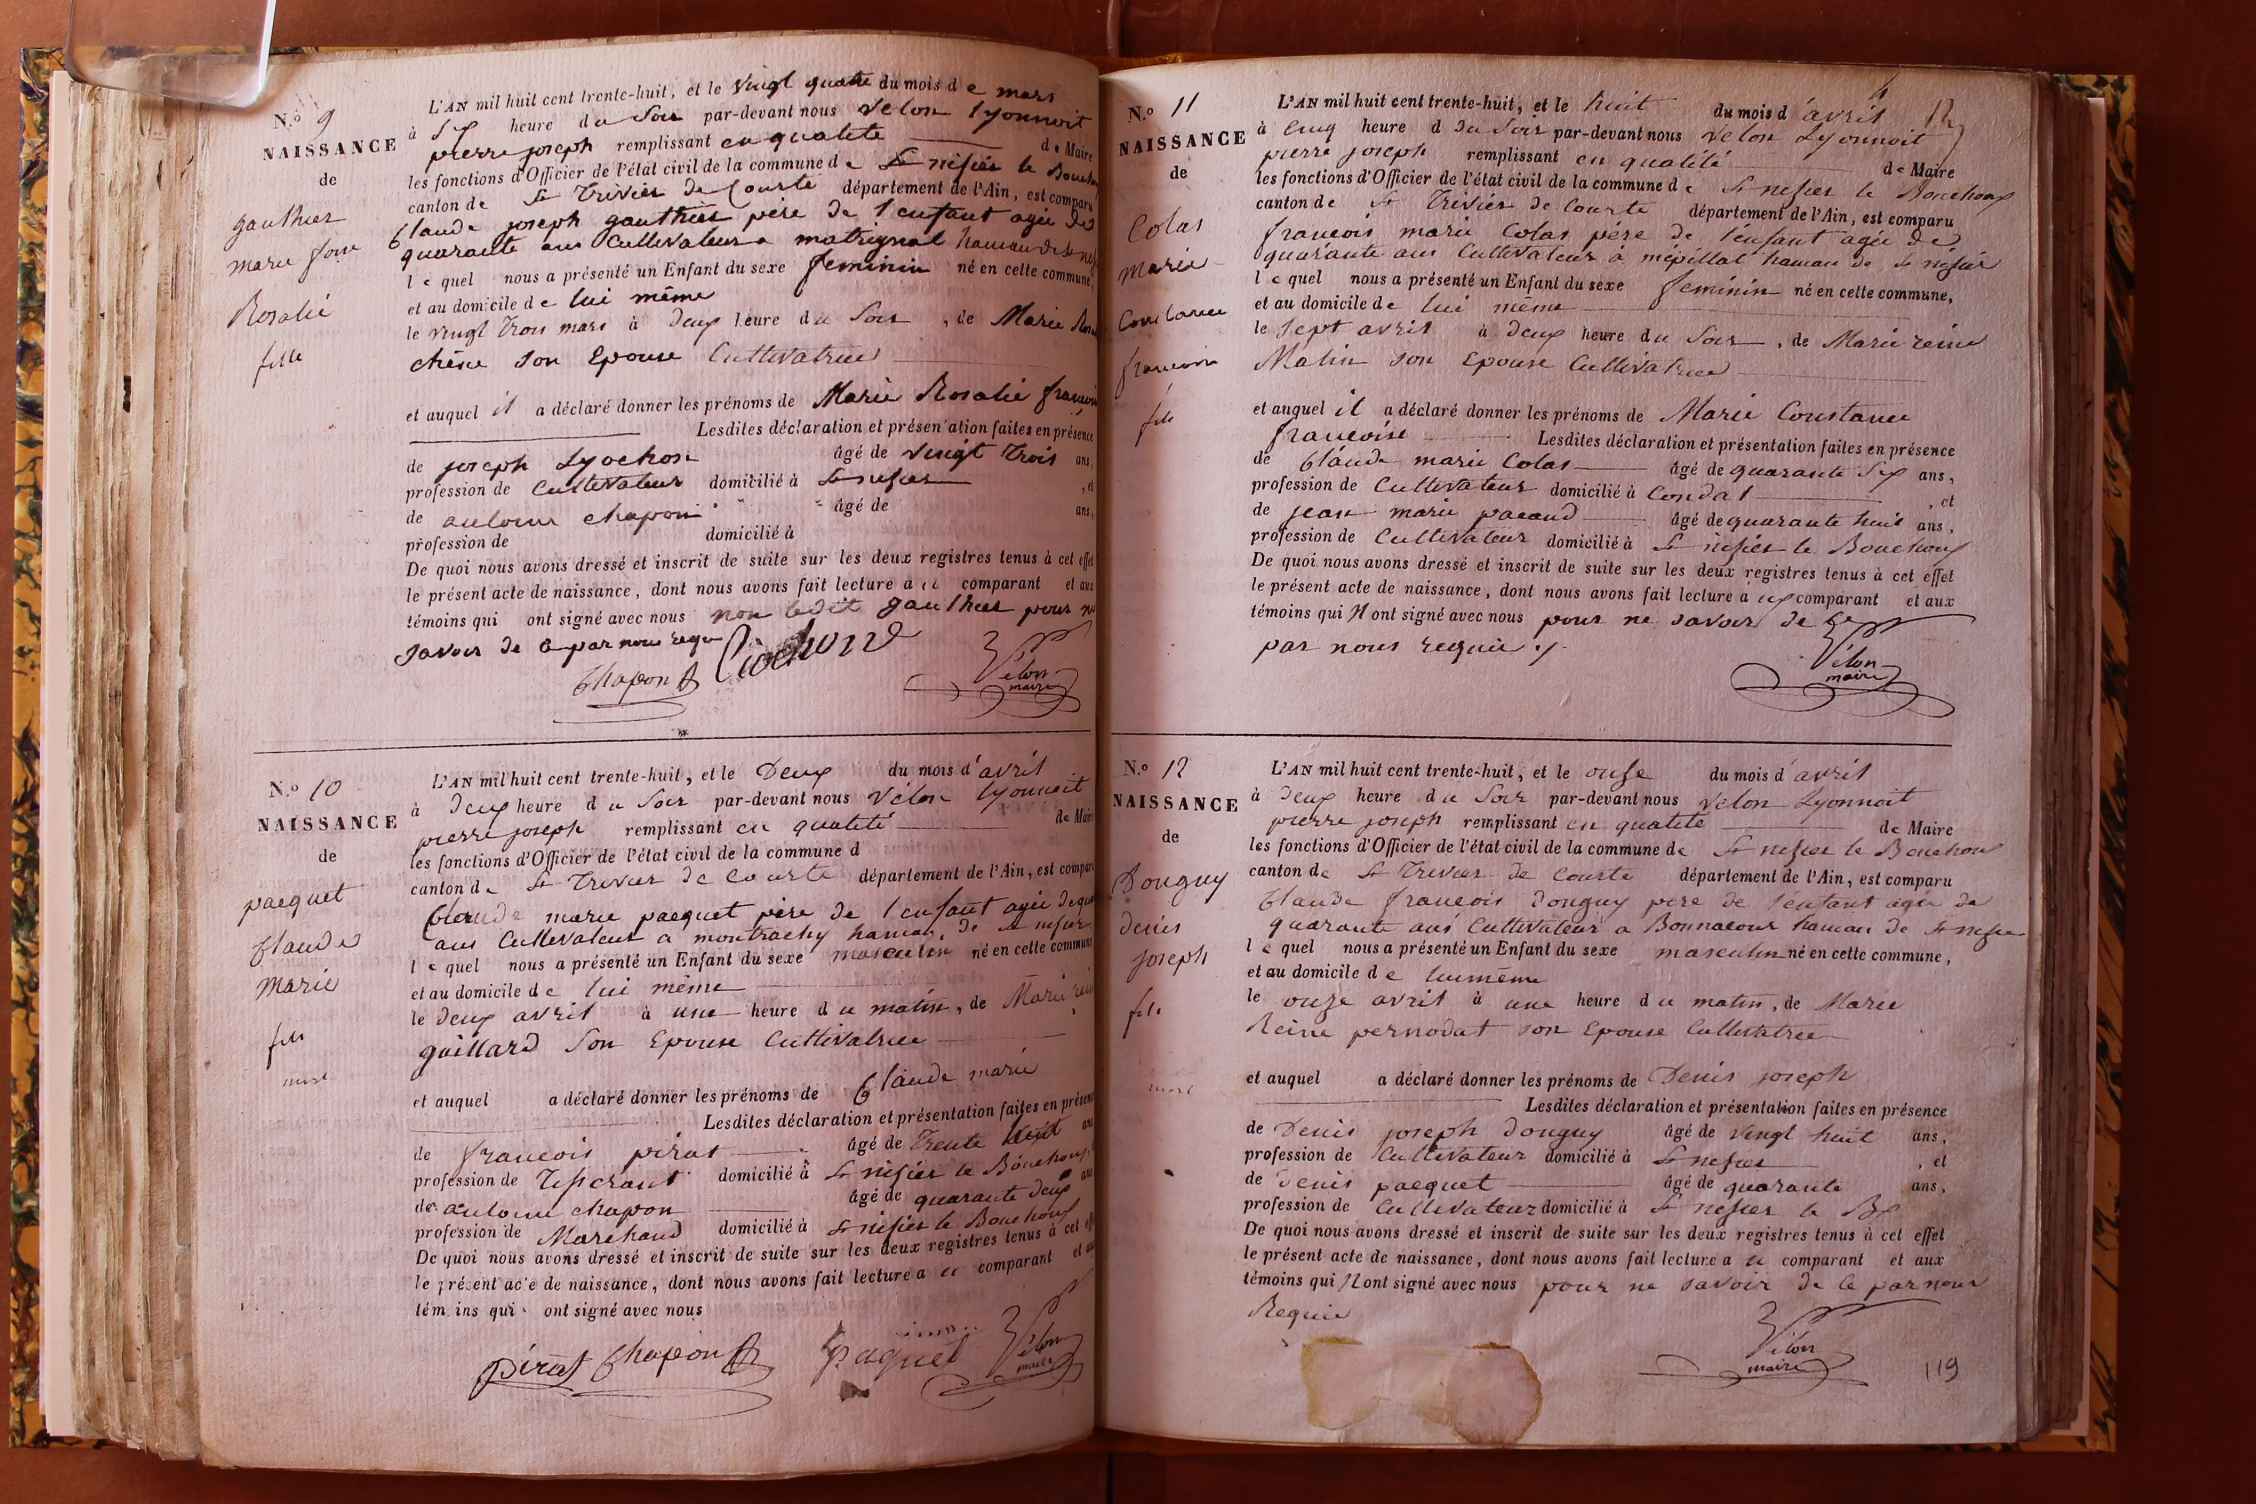 N.o 9
NAISSANCE
de
gauthier
marie
Rosalie
fille
L'AN mil huit cent trente-huit, et le vingt quatre du mois de mars
à Six heure du Soir par-devant nous velon lyonnoit
pierre joseph remplissant en qualité de Maire
les fonctions d'Officier de l'état civil de la commune de St nisier le
canton de St Trivier de Courte département de l'Ain, est comparu
Claude joseph gauthier père de l'enfant agée de
quarante ans Cultivateur a matrignat hameau de
lequel nous a présenté un Enfant du sexe feminin né en cette commune,
et au domicile de lui même
le vingt trois mars à deux heure du Soir, de Marie
chêne son Epouse Cultivatrice
et auquel il a déclaré donner les prénoms de Marie Rosalie
Lesdites déclaration et présentation faites en présence
de joseph Lyochon âgé de vingt trois ans,
profession de Cultivateur domicilié à St nisier, et
de antoine chapon " " âgé de ans,
profession de domicilié à
De quoi nous avons dressé et inscrit de suite sur les deux registres tenus à cet effet
le présent acte de naissance, dont nous avons fait lecture à ce comparant et aux
témoins qui ont signé avec nous non ledit gauthier pour ne
savoir de ce par nous requi
Chapon
Vélon
maire
N.o 10
NAISSANCE
de
pacquet
Claude
Marie
fils
L'AN mil huit cent trente-huit, et le Deux du mois d'avril
à deux heure du Soir par-devant nous Vélon lyonnoit
pierre joseph remplissant en qualité de Maire
les fonctions d'Officier de l'état civil de la commune d
canton de St Trivier de Courte département de l'Ain, est comparu
Claude marie pacquet père de l'enfant agée de
ans Cultivateur a montrachy hameau de St nisier
lequel nous a présenté un Enfant du sexe masculin né en cette commune
et au domicile de lui même
le deux avril à une heure du matin, de Marie
guillard Son Epouse Cultivatrice
et auquel a déclaré donner les prénoms de Claude marie
Lesdites déclaration et présentation faites en présence
de francois pirat âgé de Trente huit ans
profession de Tisserant domicilié à St nisier le Bouchoux
de antoine chapon âgé de quarante deux ans
profession de Marchand domicilié à St nisier le Bouchoux
De quoi nous avons dressé et inscrit de suite sur les deux registres tenus à cet effet
le présent acte de naissance, dont nous avons fait lecture a ce comparant et aux
témoins qui ont signé avec nous
pirat Chapon paquet Vélon
maire
N.o 11
NAISSANCE
de
Colas
Marie
Constance
francoise
L'AN mil huit cent trente-huit, et le huit du mois d'avril
à Cinq heure d du Soir par-devant nous Velon Lyonnoit
pierre joseph remplissant en qualité de Maire
les fonctions d'Officier de l'état civil de la commune de St nisier le Bouchoux
canton de St Trivier de Courte département de l'Ain, est comparu
francois marie Colas père de l'enfant agée de
quarante ans Cultivateur à mépillat hameau de St nisier
lequel nous a présenté un Enfant du sexe feminin né en cette commune,
et au domicile de lui même
le Sept avril à deux heure du Soir, de Marie reine
Matin son Epouse Cultivatrice
et auquel il a déclaré donner les prénoms de Marie Constance
francoise Lesdites déclaration et présentation faites en présence
de Claude marie Colas âgé de quarante Six ans,
profession de Cultivateur domicilié à Condal, et
de jean marie pacaud âgé de quarante huit ans,
profession de Cultivateur domicilié à St nisier le Bouchoux
De quoi nous avons dressé et inscrit de suite sur les deux registres tenus à cet effet
le présent acte de naissance, dont nous avons fait lecture à comparant et aux
témoins qui N ont signé avec nous pour ne savoir de Ce
par nous requie
Vélon
maire
N.o 12
NAISSANCE
de
Donguy
denis
joseph
fils
L'AN mil huit cent trente-huit, et le onze du mois d'avril
à deux heure du Soir par-devant nous Velon Lyonnoit
pierre joseph remplissant en qualité de Maire
les fonctions d'Officier de l'état civil de la commune de St nisier le Bouchoux
canton de St Trivier de Courte département de l'Ain, est comparu
Claude francois donguy pere de l'enfant agée de
quarante ans Cultivateur a Bonnacour hameau de St nisier
lequel nous a présenté un Enfant du sexe masculin né en cette commune,
et au domicile de lui même
le onze avril à une heure du matin, de Marie
Reine pernodat son Epouse Cultivatrice
et auquel a déclaré donner les prénoms de Denis joseph
Lesdites déclaration et présentation faites en présence
de Denis joseph donguy âgé de vingt huit ans,
profession de Cultivateur domicilié à St nisier, et
de denis pacquet âgé de quarante ans,
profession de Cultivateur domicilié à St nisier le Bx
De quoi nous avons dressé et inscrit de suite sur les deux registres tenus à cet effet
le présent acte de naissance, dont nous avons fait lecture a ce comparant et aux
témoins qui N ont signé avec nous pour ne savoir de Ce par nous
Requie
Vélon
maire
119